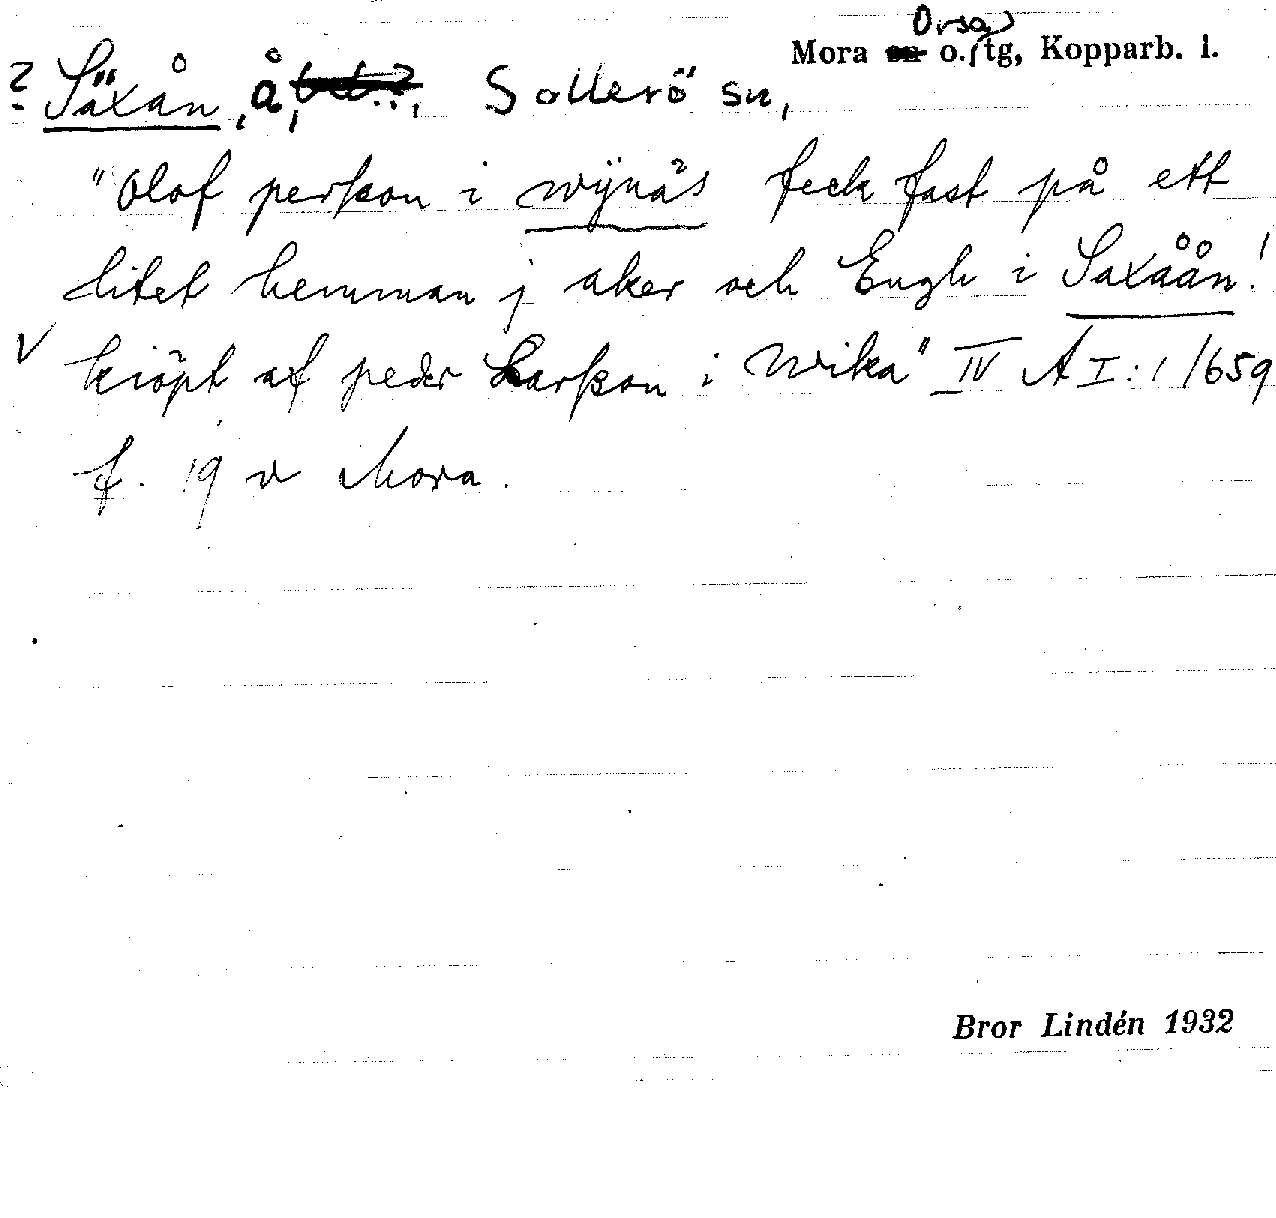 Orsa
Mora sn o. tg, Kopparb. l.
? Säxån, å, Sollerö sn,
"Olof perßon i wÿnäs feck fast på ett
litet hemman j aker och Engh i Saxåån!
V kiöpt af peder Larßon i Wika" IV A I:1/659
f. 19 v Mora.
Bror Lindén 1932